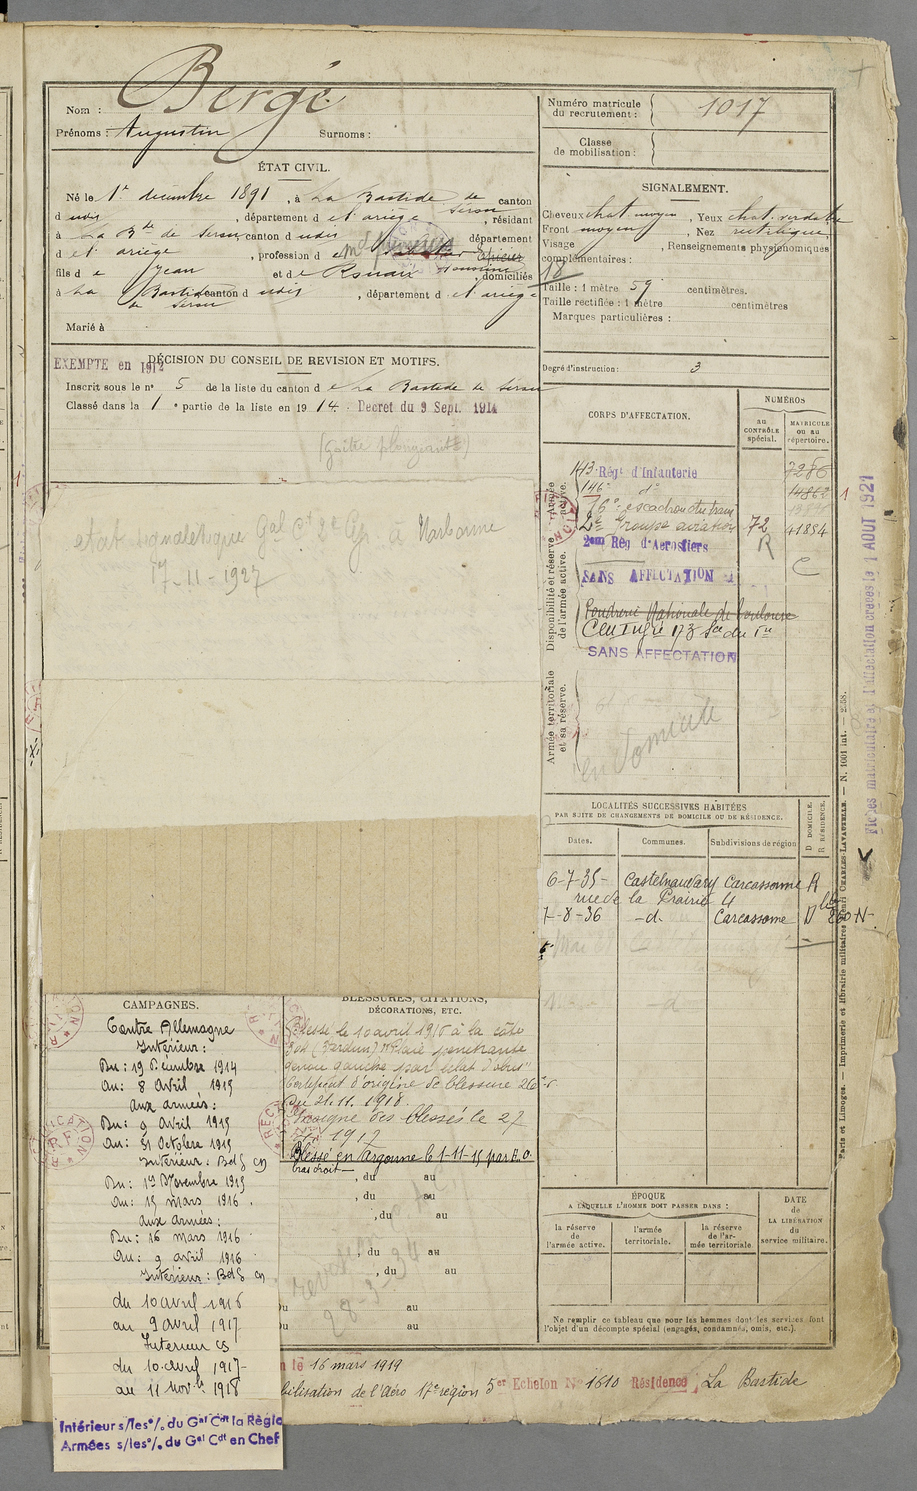 Nom : Bergé
Prénoms : Augustin Surnoms :
ÉTAT CIVIL.
Né le 1er décembre 1891, à La Bastide de Sérou canton
d udis, département d e l'ariège, résidant
à La Bde de Serou, canton d udis département
d e l'ariège, profession d e Md Epicier
fils d e Jean et d e domiciliés
à La Bastide de Serou canton d udis, département d e l'ariège
Marié à
DÉCISION DU CONSEIL DE REVISION ET MOTIFS.
EXEMPTE en 1912
Inscrit sous le n° 5 de la liste du canton d e La Bastide de Serou
Classé dans la 1e partie de la liste en 1914. Decret du 9 Sept. 1914
(Goître plongeant)
etat signalétique Gal Ct à Narbonne
17-11-1927
CAMPAGNES.
Contre Allemagne
Intérieur :
Du : 19 Décembre 1914
au : 8 avril 1915
aux armées :
Du : 9 avril 1915
au : 31 Octobre 1915
Intérieur : BdG CS
Du : 1er Novembre 1915
au : 15 mars 1916.
aux armées :
Du : 16 mars 1916
au : 9 avril 1916
Intérieur : BdG CS
du 10 avril 1916
au 9 avril 1917
Interieur CS
du 10 avril 1917
au 11 novbre 1918
Intérieur s/les °/. du Gal Cdt la Règle
Armées s/les °/. du Gal Cdt en Chef
BLESSURES, CITATIONS,
DÉCORATIONS, ETC.
Blessé le 10 avril 1916 à la côte
304 (Verdun) "Plaie penetrante
genou gauche par éclat d'obus"
Certificat d'origine de blessure
du 21.11.1918.
Insigne des blessés le 27
1917
Blessé en Argonne le 1-11-15 par E.O.
bras droit
, du au
, du au
, du au
, du au
, du au
du au
du au
28-3-34
le 16 mars 1919
bilisation de l'Aéro 17e région 5er Echelon No 1610 Résidence La Bastide
Numéro matricule
du recrutement : 1017
Classe
de mobilisation :
SIGNALEMENT.
Cheveux chat moyen, Yeux chat. verdatre
Front moyen, Nez rectiligne
Visage, Renseignements physionomiques
complémentaires :
Taille : 1 mètre 59 centimètres.
Taille rectifiée : 1 mètre centimètres
Marques particulières :
Degré d'instruction : 3
CORPS D'AFFECTATION.
NUMÉROS
au
CONTRÔLE
spécial.
MATRICULE
ou au
répertoire.
Armée
active.
143e Régt d'Infanterie 7286
146e do 14862
16e escadron du train
2e Groupe aviation 72 41854
Disponibilité et réserve
de l'armée active.
2me Rég d'Aérostiers R
SANS AFFECTATION
Poudrerie Nationale de Toulouse
SANS AFFECTATION
Armée territoriale
et sa réserve.
LOCALITÉS SUCCESSIVES HABITÉES
PAR SUITE DE CHANGEMENTS DE DOMICILE OU DE RÉSIDENCE.
Dates. Communes. Subdivisions de région
D DOMICILE.
R RÉSIDENCE.
6-7-35- Castelnaudary Carcassonne R
rue de la Prairie 4
7-8-36 -d- Carcassonne D
ÉPOQUE
A LAQUELLE L'HOMME DOIT PASSER DANS :
la réserve
de
l'armée active.
l'armée
territoriale.
la réserve
de l'ar-
mée territoriale
DATE
de
LA LIBÉRATION
du
service militaire.
Ne remplir ce tableau que pour les hommes dont les services font
l'objet d'un décompte spécial (engagés, condamnés, omis, etc.).
Paris et Limoges. — Imprimerie et librairie militaires Henri CHARLES-LAVAUZELLE. — N. 1001 int. — 2-58.
Fiches matriculaire et d'affectation créées le 1 AOUT 1921